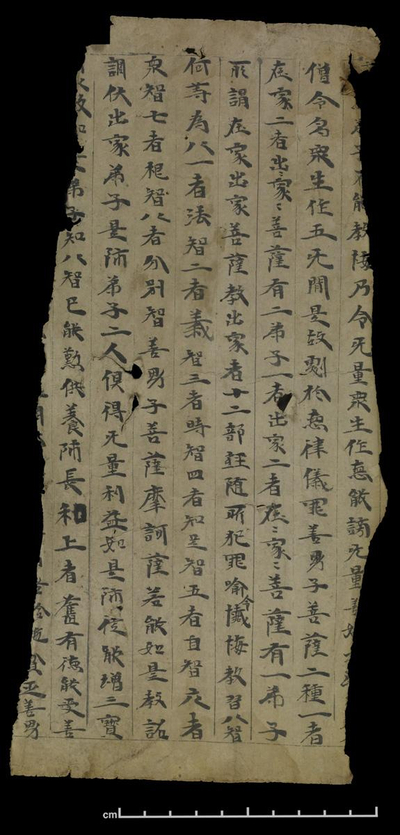 弟子不能教悔乃令无量衆生作惡能謗无量善
僧令多衆生作五无間是故劇於惡律儀罪善男子菩薩二種一者
在家二者出家〻菩薩有二弟子一者出家二者在〻家〻菩薩有一弟子
所謂在家出家菩薩教出家者十二部經隨所犯罪喻令懺悔教習八智
何等為八一者法智二者義智三者時智四者知足智五者自智六者
衆智七者根智八者分別智善男子菩薩摩訶薩若能如是教詔
調伏出家弟子是師弟子二人俱得无量利益如是師徒能增三寶
弟子知八智已能懃供養師長和上耆舊有德能受善
善男